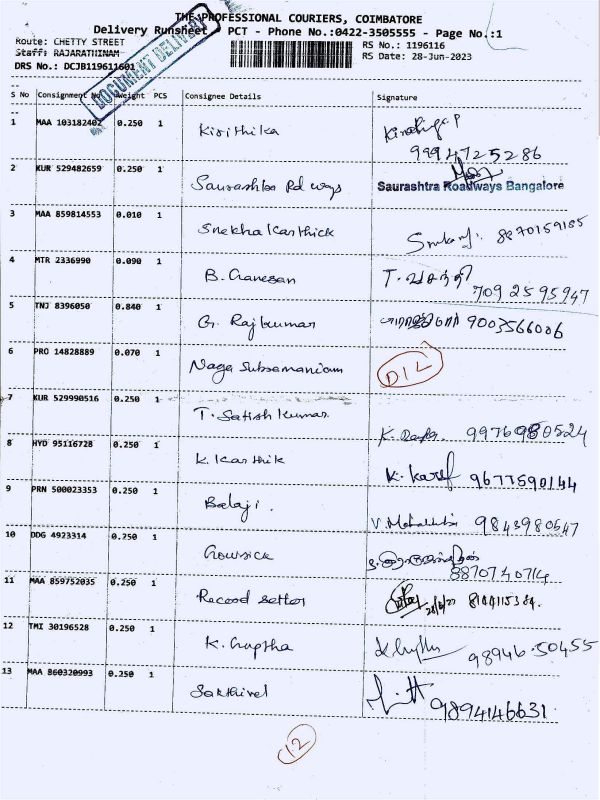 THE PROFESSIONAL COURIERS, COIMBATORE
Delivery Runsheet PCT - Phone No.:0422-3505555 - Page No.:1
Route: CHETTY STREET RS No.: 1196116
Staff: RAJARATHINAM RS Date: 28-Jun-2023
DRS No.: DCJB119611601
DOCUMENT DELIVERY
S No Consignment No. Weight PCS Consignee Details Signature
1 MAA 103182402 0.250 1 Kirithika
9994725286
2 KUR 529482659 0.250 1 Saurashtra Rd ways
Saurashtra Roadways Bangalore
3 MAA 859814553 0.010 1 Snekha Karthick 8870159185
4 MTR 2336990 0.090 1 B. Ganesan T. வசந்தி
7092595947
5 TNJ 8396050 0.840 1 G. Rajkumar 9003566006
6 PRO 14828889 0.070 1 Naga Subramaniam D12
7 KUR 529990516 0.250 1 T. Satish Kumar 9976980524
8 HYD 95116728 0.250 1 K. Karthik 9677590144
9 PRN 500023353 0.250 1 Balaji. 9843980647
10 DDG 4923314 0.250 1 Gowsick
8870740714
11 MAA 859752035 0.250 1 Record settor
12 TMI 30196528 0.250 1 K. Guptha 98946 50455
13 MAA 860320993 0.250 1 Sakthivel
9894146631
12